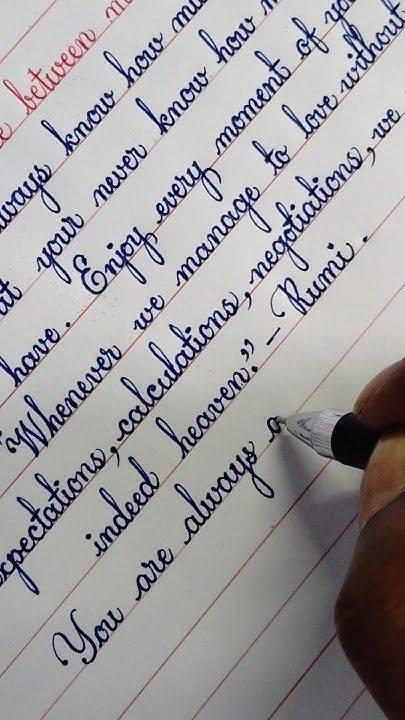 between
always know how mu
your never know how m
have. Enjoy every moment of yo
"Whenever we manage to love without
expectations, calculations, negotiations, we
indeed heaven." – Rumi.
You are always a